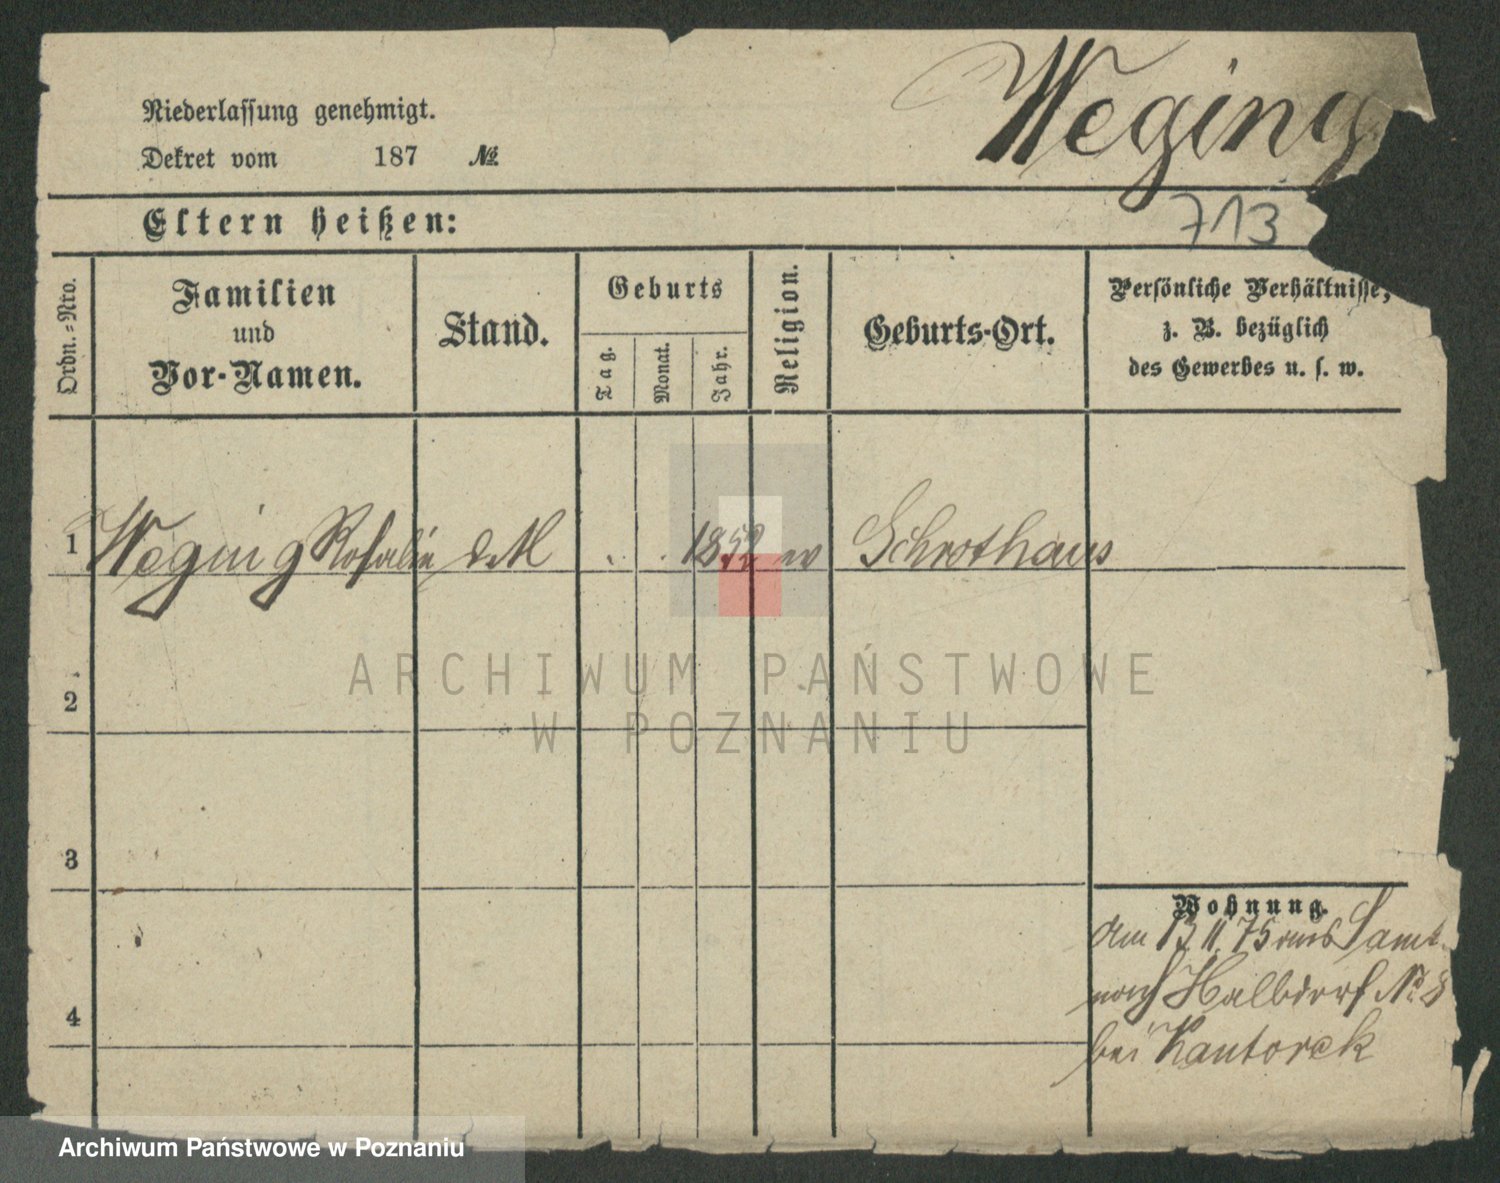 Weging
Niederlassung genehmigt.
Dekret vom 187 №
713
Eltern heißen:
Ordn.-Nro.
Familien
und
Vor-Namen.
Stand.
Geburts
Tag.
Monat.
Jahr.
Religion.
Geburts-Ort.
Persönliche Verhältnisse,
z. B. bezüglich
des Gewerbes u. s. w.
1 Weging Rosalie d. M . . 1852 ev Schrothaus
ARCHIWUM PAŃSTWOWE
W POZNANIU
2
3
4
Wohnung.
Am 13 11. 75 aus Samt.
nach Halbdorf № 8
bei Kantorek
Archiwum Państwowe w Poznaniu